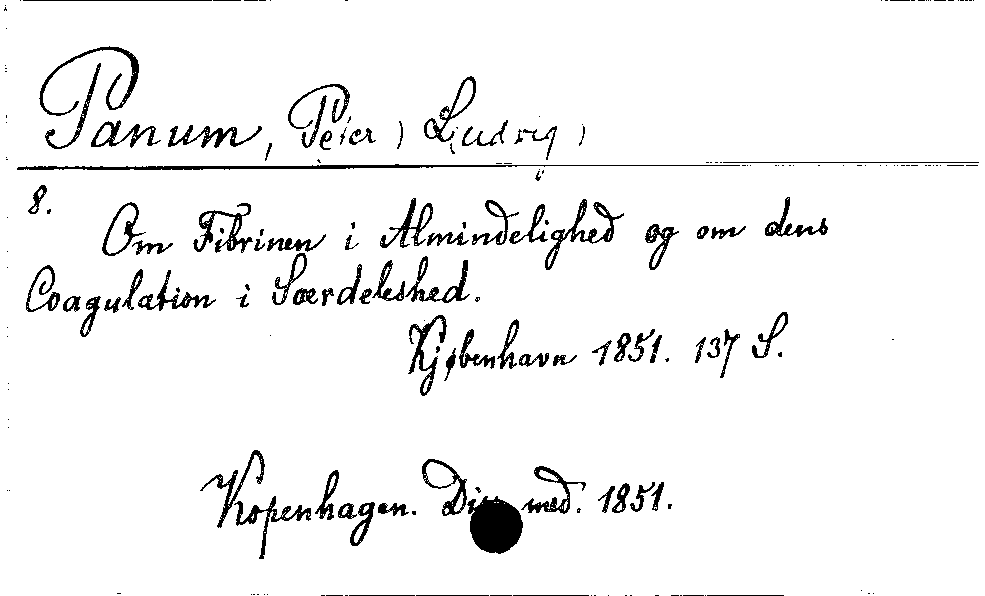 Panum, Peter) Ludvig)
8.
Om Fibrinen i Almindelighed og om dens
Coagulation i Særdeleshed.
Kjøbenhavn 1851. 137 S.
Kopenhagen. Diss. med. 1851.